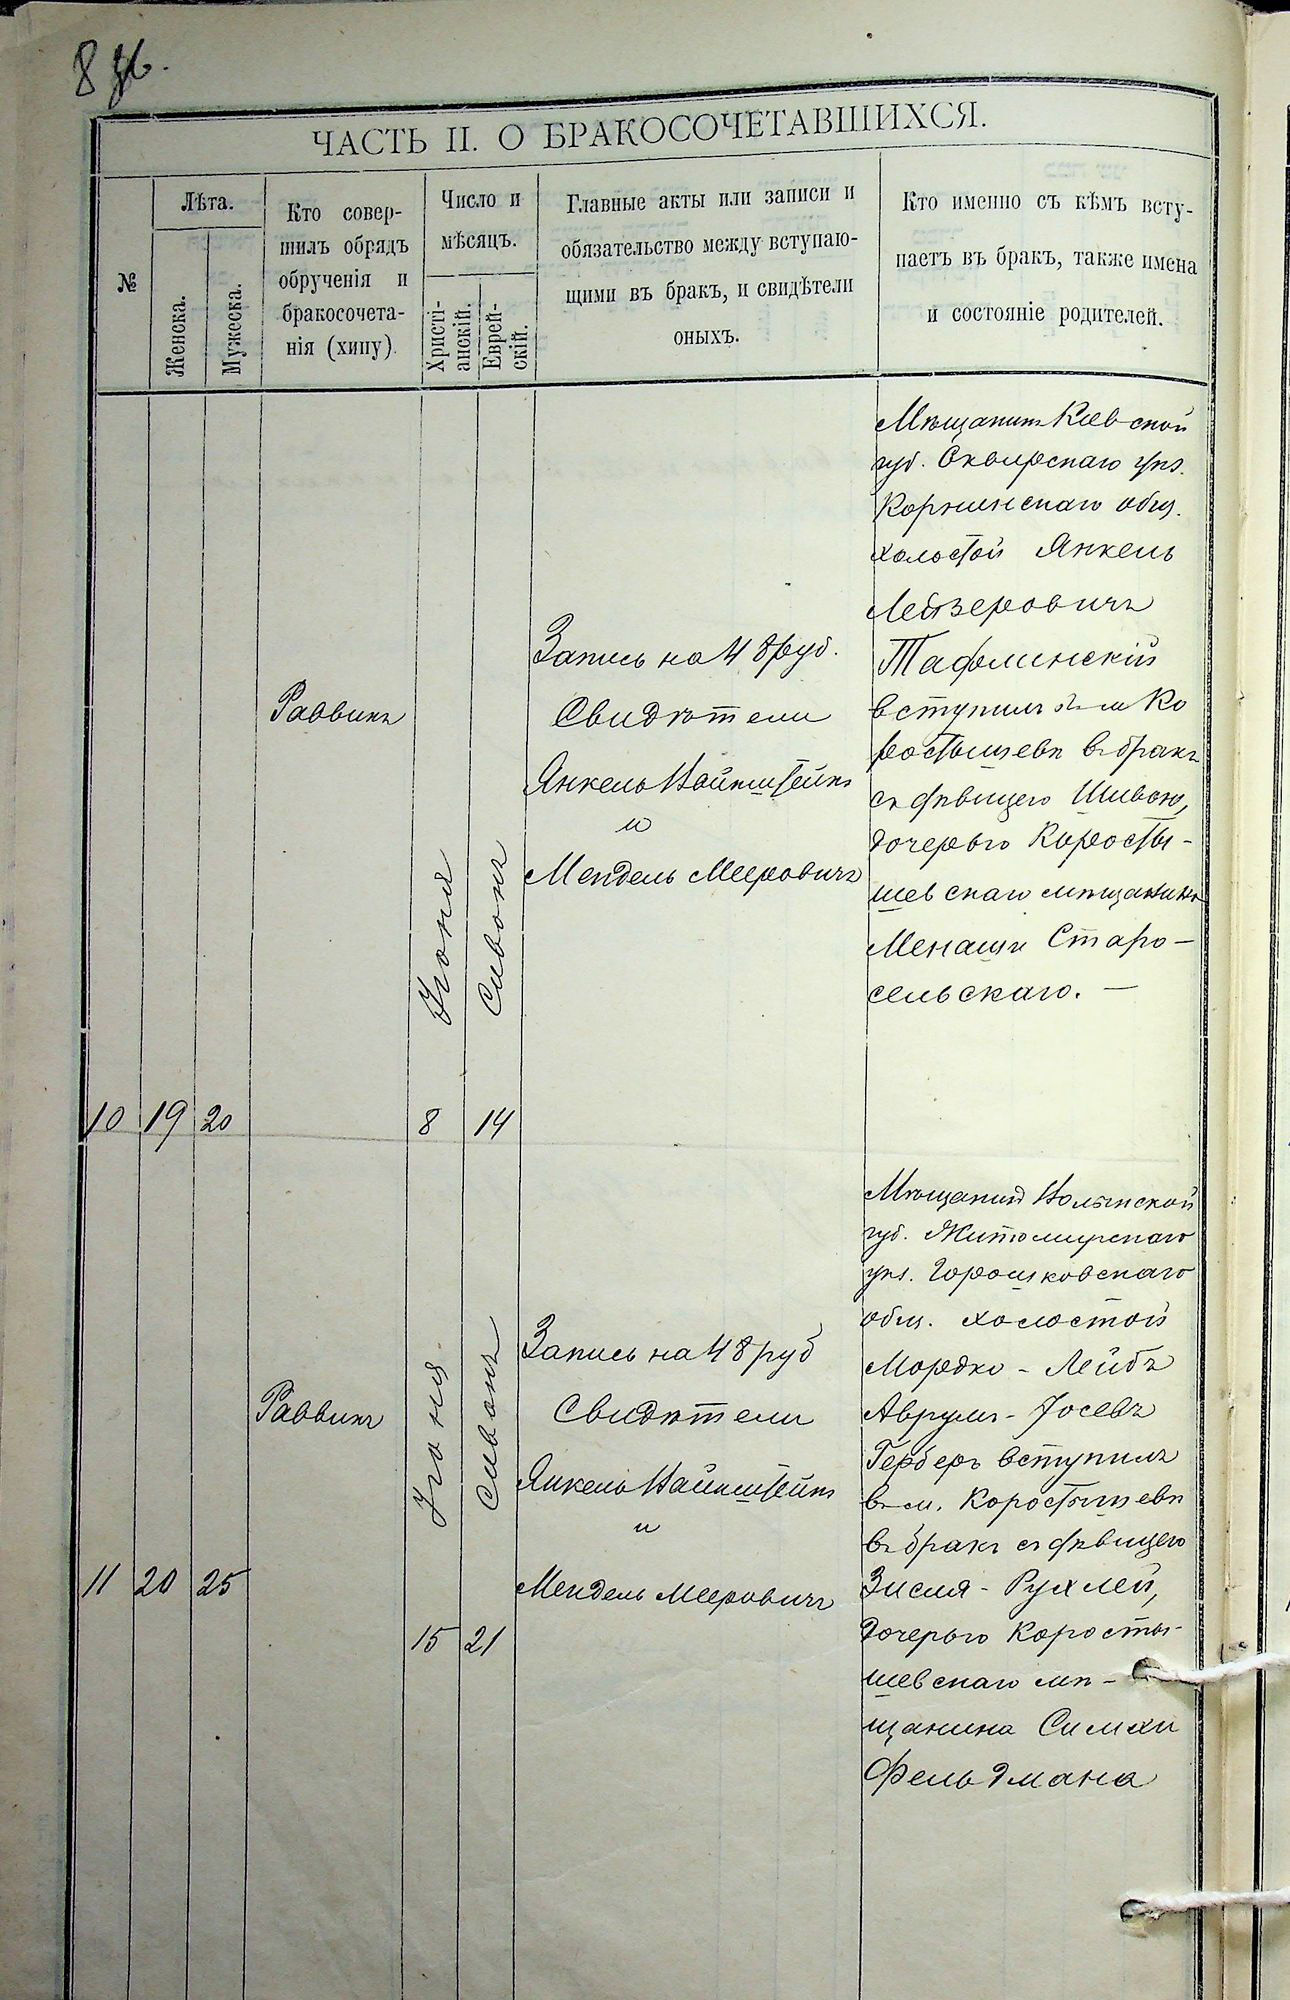 8 зв.
ЧАСТЬ II. О БРАКОСОЧЕТАВШИХСЯ.
№
Лѣта.
Женска.
Мужеска.
Кто совер-
шилъ обрядъ
обрученія и
бракосочета-
нія (хипу)
Число и
мѣсяцъ.
Христі-
анскій.
Еврей-
скій.
Главные акты или записи и
обязательство между вступаю-
щими въ бракъ, и свидѣтели
оныхъ.
Кто именно съ кѣмъ всту-
паетъ въ бракъ, также имена
и состояніе родителей.
10
19
20
Раввинъ
Іюня
8
Сивонъ
14
Запись на 48 руб.
Свидѣтели
Янкель Вайнштейнъ
и
Мендель Мееровичъ
Мѣщанинъ Кіевской
губ. Сквирскаго уѣз.
Корнинскаго общ.
холостой Янкель
Лейзеровичъ
Тафлинскій
вступилъ въ м. Ко
ростышевѣ въ бракъ
съ дѣвицею Шивою,
дочерью Коросты-
шевскаго мѣщанина
Менаши Старо-
сельскаго. —
11
20
25
Раввинъ
Іюня
15
Сивонъ
21
Запись на 48 руб
Свидѣтели
Янкель Вайнштейнъ
и
Мендель Мееровичъ
Мѣщанинъ Волынской
губ. Житомирскаго
уѣз. Горошковскаго
общ. холостой
Мордко-Лейбъ
Аврумъ-Іосевъ
Герберъ вступилъ
въ м. Коростышевѣ
въ бракъ съ дѣвицею
Зисля-Рухлей,
дочерью Коросты-
шевскаго мѣ-
щанина Симхи
Фельдмана